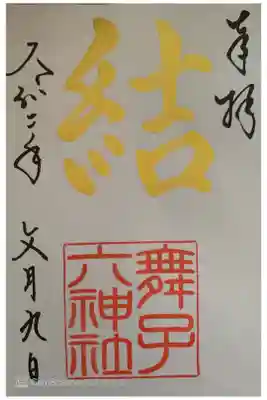 奉拝
結
舞子
六神社
令和二年 文月九日